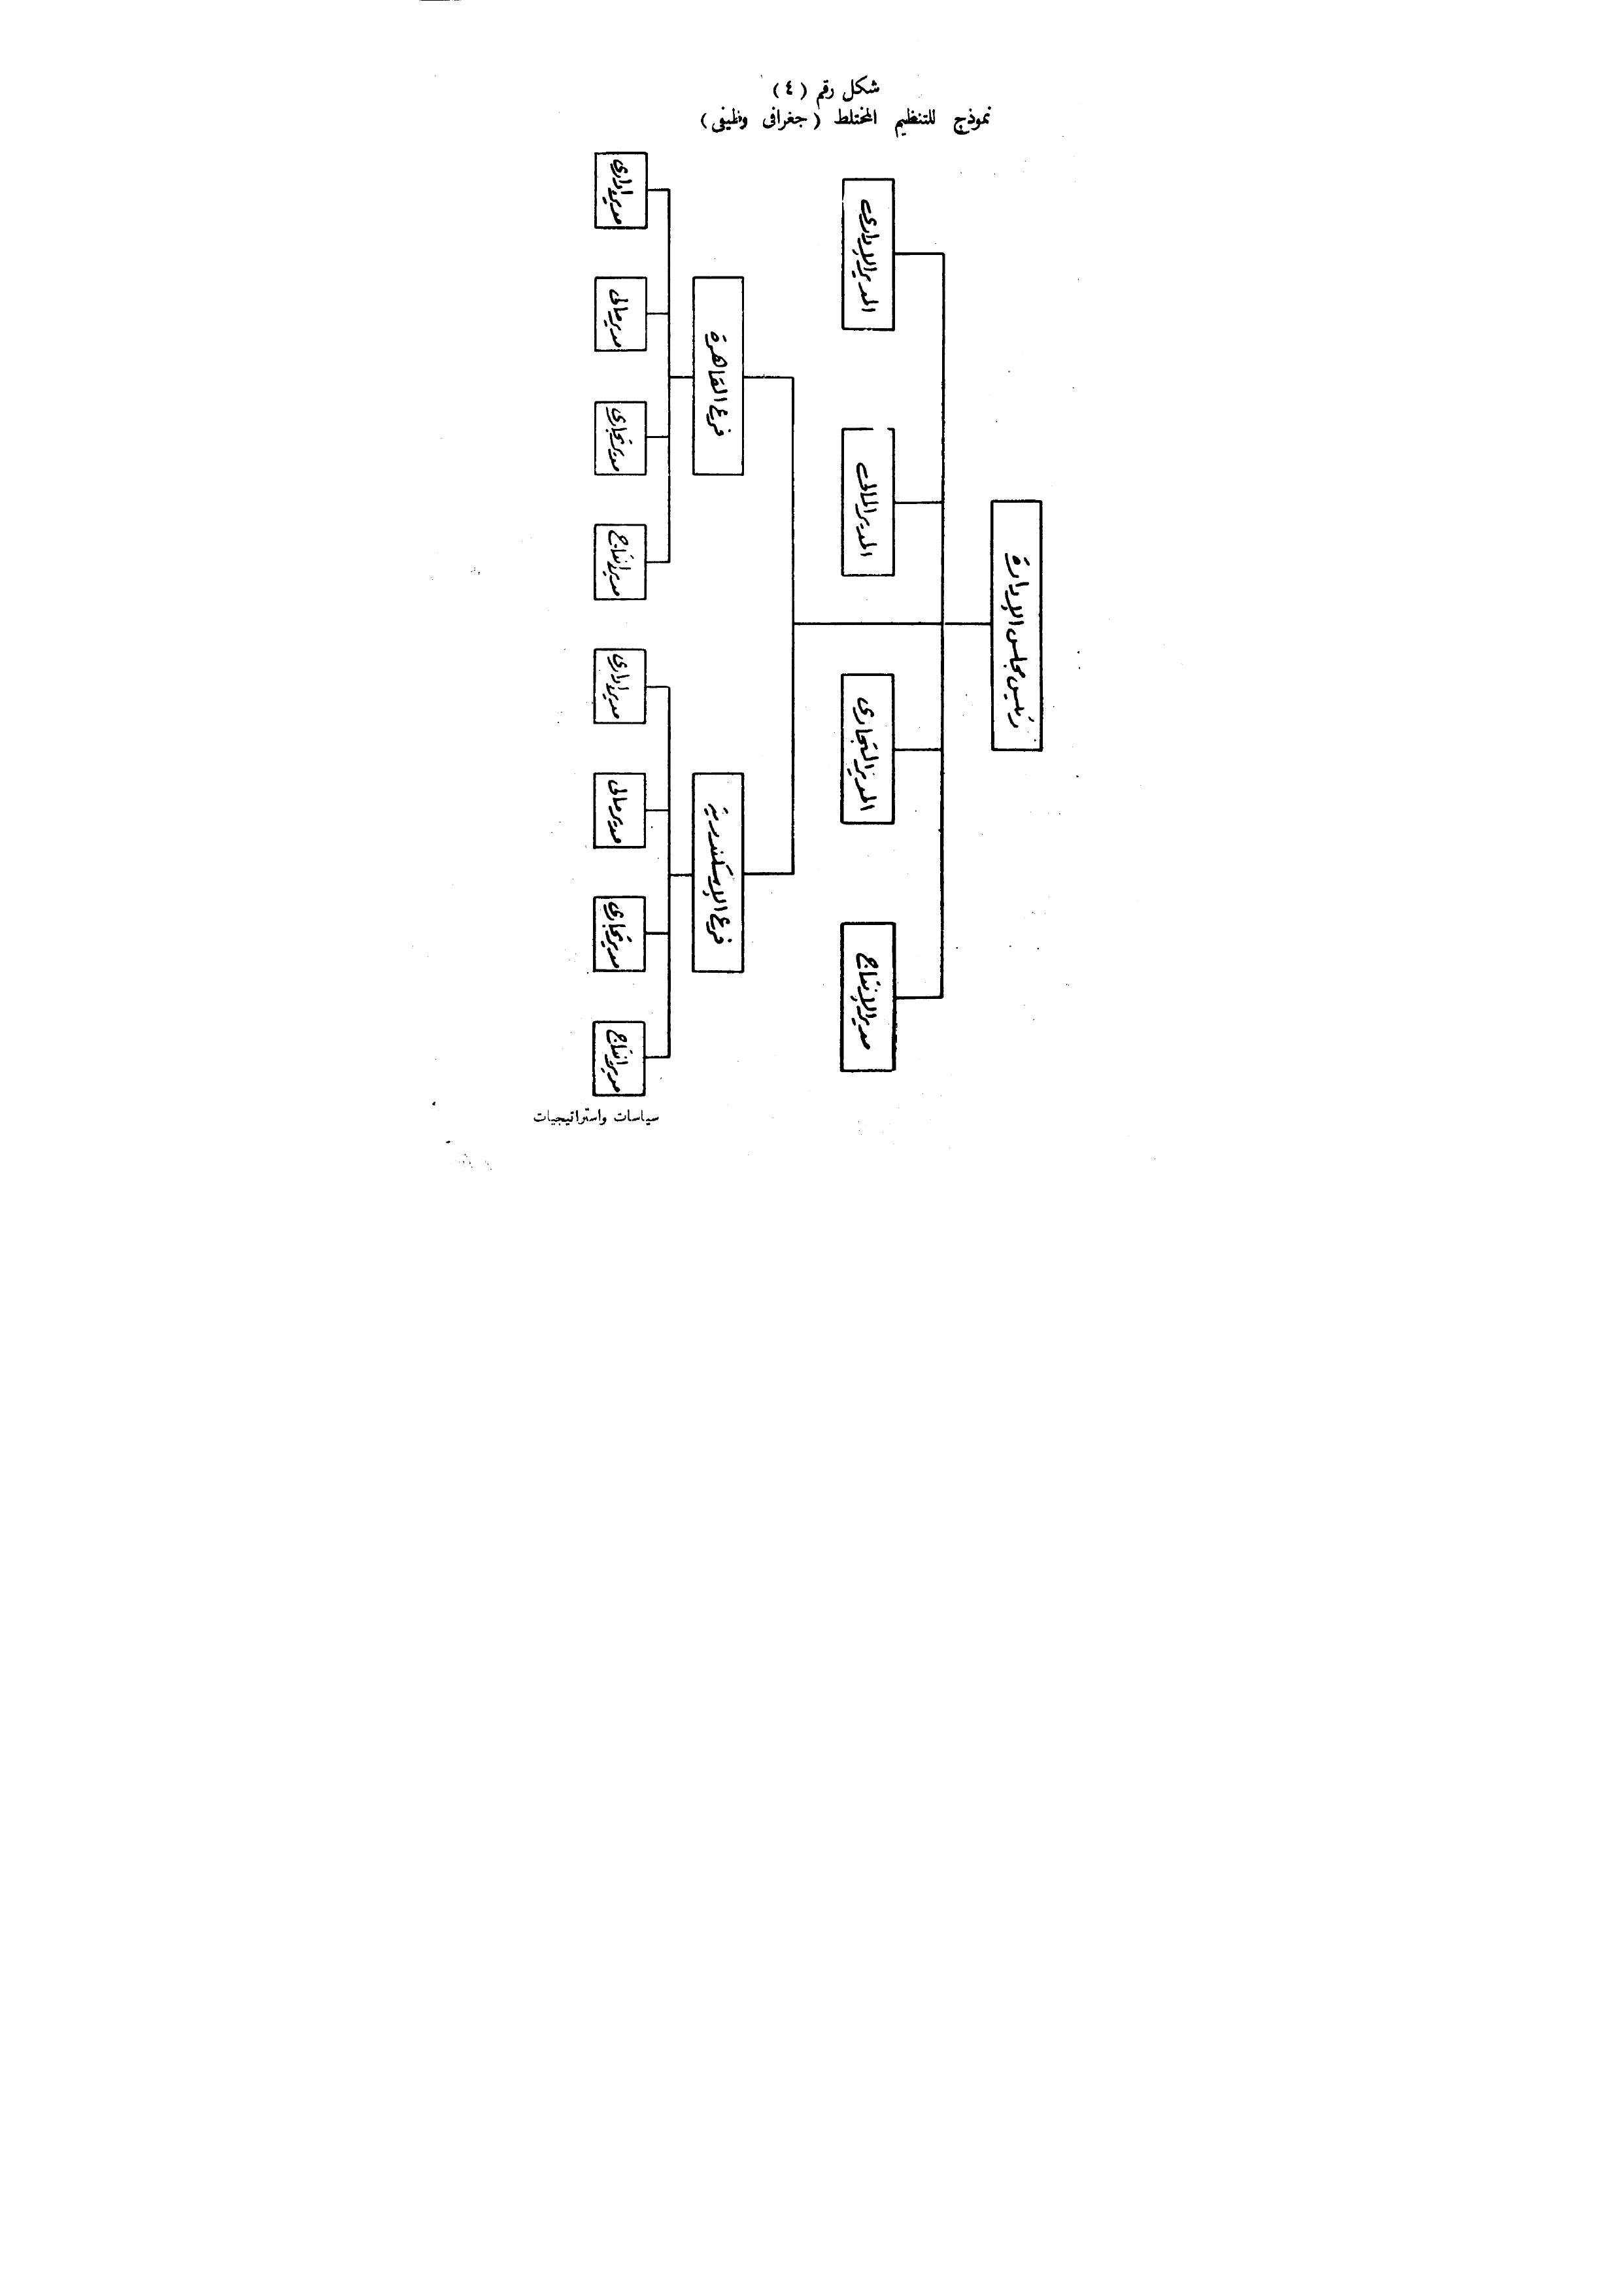 شكل رقم ( ٤ )
نموذج للتنظيم المختلط ( جغرافى وظيفى )
رئيس مجلس الإدارة
المدير الإدارى
المدير المالى
المدير التجارى
مدير الإنتاج
فرع القاهرة
فرع الإسكندرية
مدير إدارى
مدير مالى
مدير تجارى
مدير إنتاج
مدير إدارى
مدير مالى
مدير تجارى
مدير إنتاج
سياسات واستراتيجيات